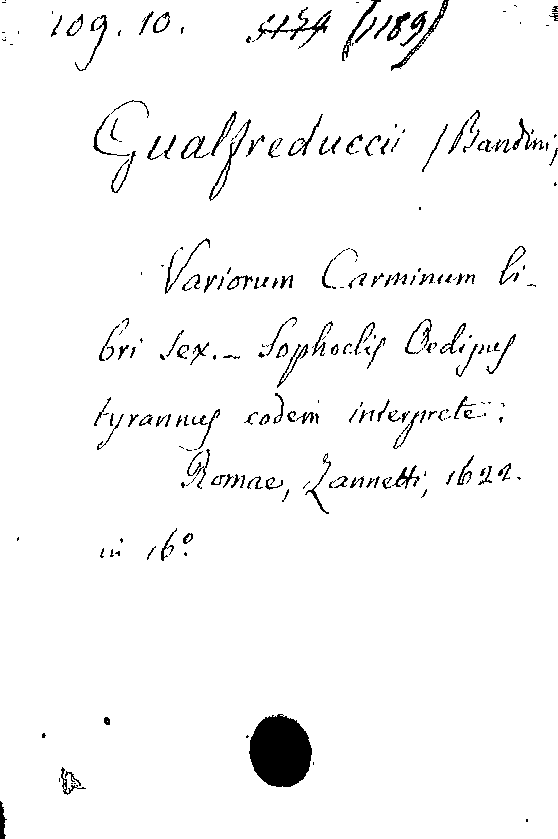 109. 10. (1189)
Gualfreduccii (Bandini,
Variorum Carminum li-
bri sex. - Sophoclis Oedipus
tyrannus eodem interprete.
Romae, Zannetti, 1622.
in 16º